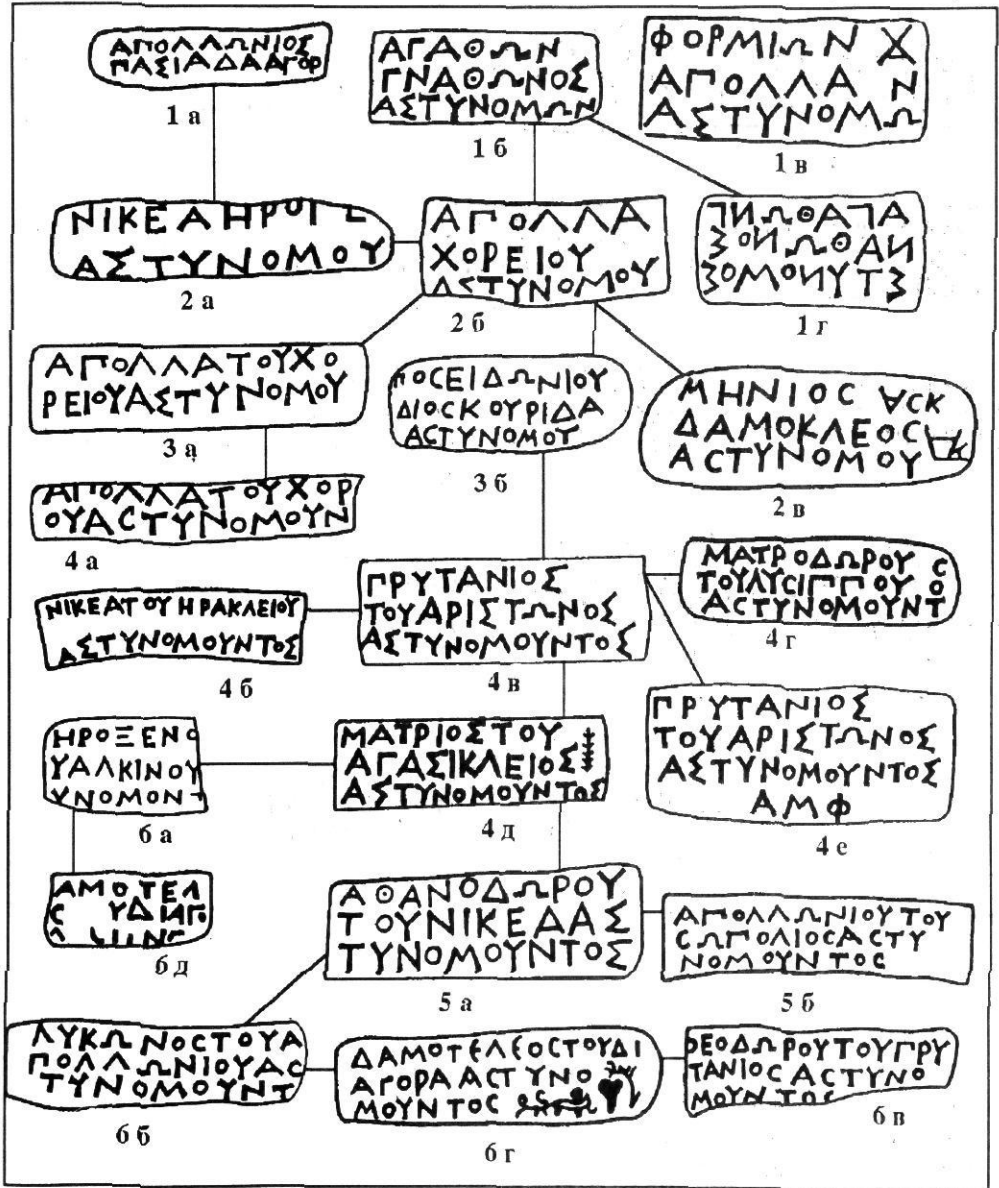 ΑΠΟΛΛΩΝΙΟΣ
ΠΑΣΙΑΔΑΑΓΟΡ
1 а
ΑΓΑΘΩΝ
ΓΝΑΘΩΝΟΣ
ΑΣΤΥΝΟΜΩΝ
1 б
ΦΟΡΜΙΩΝ
ΑΠΟΛΛΑ Ν
ΑΣΤΥΝΟΜΩ
1 в
ΝΙΚΕΑΗΡΟΓΕ
ΑΣΤΥΝΟΜΟΥ
2 а
ΑΠΟΛΛΑ
ΧΟΡΕΙΟΥ
ΑΣΤΥΝΟΜΟΥ
2 б
1 г
ΑΠΟΛΛΑΤΟΥΧΟ
ΡΕΙΟΥΑΣΤΥΝΟΜΟΥ
3 а
ΠΟCΕΙΔΩΝΙΟΥ
ΔΙΟCΚΟΥΡΙΔΑ
ΑCΤΥΝΟΜΟΥ
3 б
ΜΗΝΙΟC
ΔΑΜΟΚΛΕΟC
ΑCΤΥΝΟΜΟΥ
2 в
ΑΠΟΛΛΑΤΟΥΧΟΡ
ΟΥΑCΤΥΝΟΜΟΥΝ
4 а
ΝΙΚΕΑΤΟΥΗΡΑΚΛΕΙΟΥ
ΑΣΤΥΝΟΜΟΥΝΤΟΣ
4 б
ΠΡΥΤΑΝΙΟΣ
ΤΟΥΑΡΙΣΤΩΝΟΣ
ΑΣΤΥΝΟΜΟΥΝΤΟΣ
4 в
ΜΑΤΡΟΔΩΡΟΥ C
ΤΟΥΛΥCΙΠΠΟΥ Ο
ΑCΤΥΝΟΜΟΥΝΤ
4 г
ΗΡΟΞΕΝΟ
ΥΑΛΚΙΝΟΥ
ΥΝΟΜΟΝΤ
6 а
ΜΑΤΡΙΟΣΤΟΥ
ΑΓΑΣΙΚΛΕΙΟΣ
ΑΣΤΥΝΟΜΟΥΝΤΟΣ
4 д
ΠΡΥΤΑΝΙΟΣ
ΤΟΥΑΡΙΣΤΩΝΟΣ
ΑΣΤΥΝΟΜΟΥΝΤΟΣ
ΑΜΦ
4 е
ΑΜΟΤΕΛ
C ΥΔΙΑΓΟ
6 д
ΑΘΑΝΟΔΩΡΟΥ
ΤΟΥΝΙΚΕΑΑΣ
ΤΥΝΟΜΟΥΝΤΟΣ
5 а
ΑΠΟΛΛΩΝΙΟΥΤΟΥ
CΩΠΟΛΙΟCΑCΤΥ
ΝΟΜΟΥΝΤΟC
5 б
ΛΥΚΩΝΟCΤΟΥΑ
ΠΟΛΛΩΝΙΟΥΑC
ΤΥΝΟΜΟΥΝΤ
6 б
ΔΑΜΟΤΕΛΕΟCΤΟΥΔΙ
ΑΓΟΡΑΑCΤΥΝΟ
ΜΟΥΝΤΟC
6 г
ΘΕΟΔΩΡΟΥΤΟΥΠΡΥ
ΤΑΝΙΟCΑCΤΥΝΟ
ΜΟΥΝΤΟC
6 в